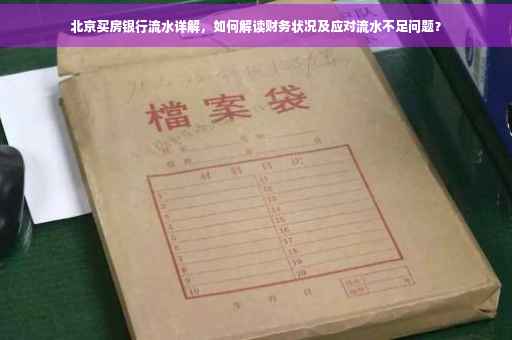 北京买房银行流水详解，如何解读财务状况及应对流水不足问题？
檔案袋
材料目次
1 11
2 12
3 13
4 14
5 15
6 16
7 17
8 18
9 19
10 20
年 月 日